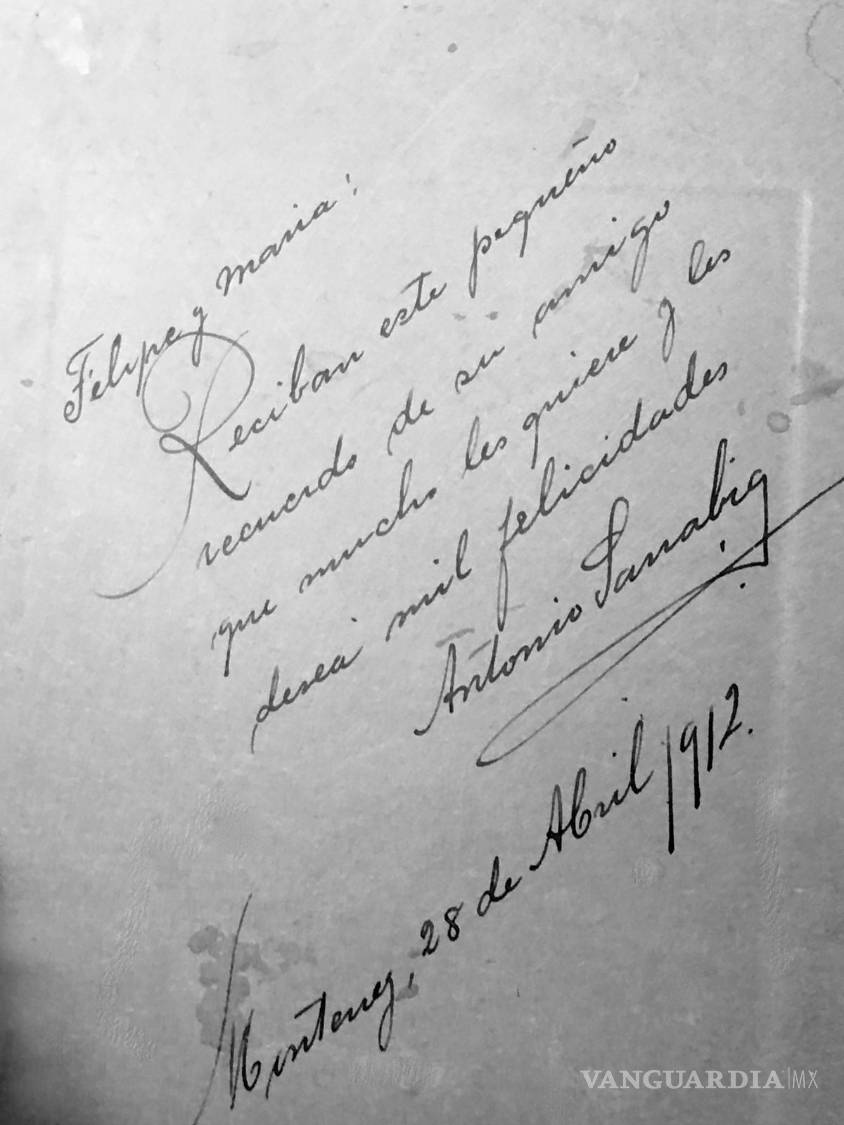 Felipe y Maria:
Reciban este pequeño
recuerdo de su amigo
que mucho les quiere y les
desea mil felicidades
Antonio Sanabia
Monterrey, 28 de Abril 1912.
VANGUARDIA|MX